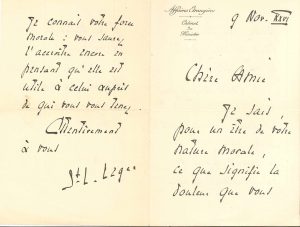 Affaires Étrangères
Cabinet
du
Ministre
9 Nov. XXVI
Chère Amie
Je sais,
pour un être de votre
nature morale,
ce que signifie la
douleur que vous
Je connais votre force
morale : vous saurez
l'accroître encore en
pensant qu'elle est
utile à celui auprès
de qui vous vous tenez.
Attentivement
à vous
St L. Léger